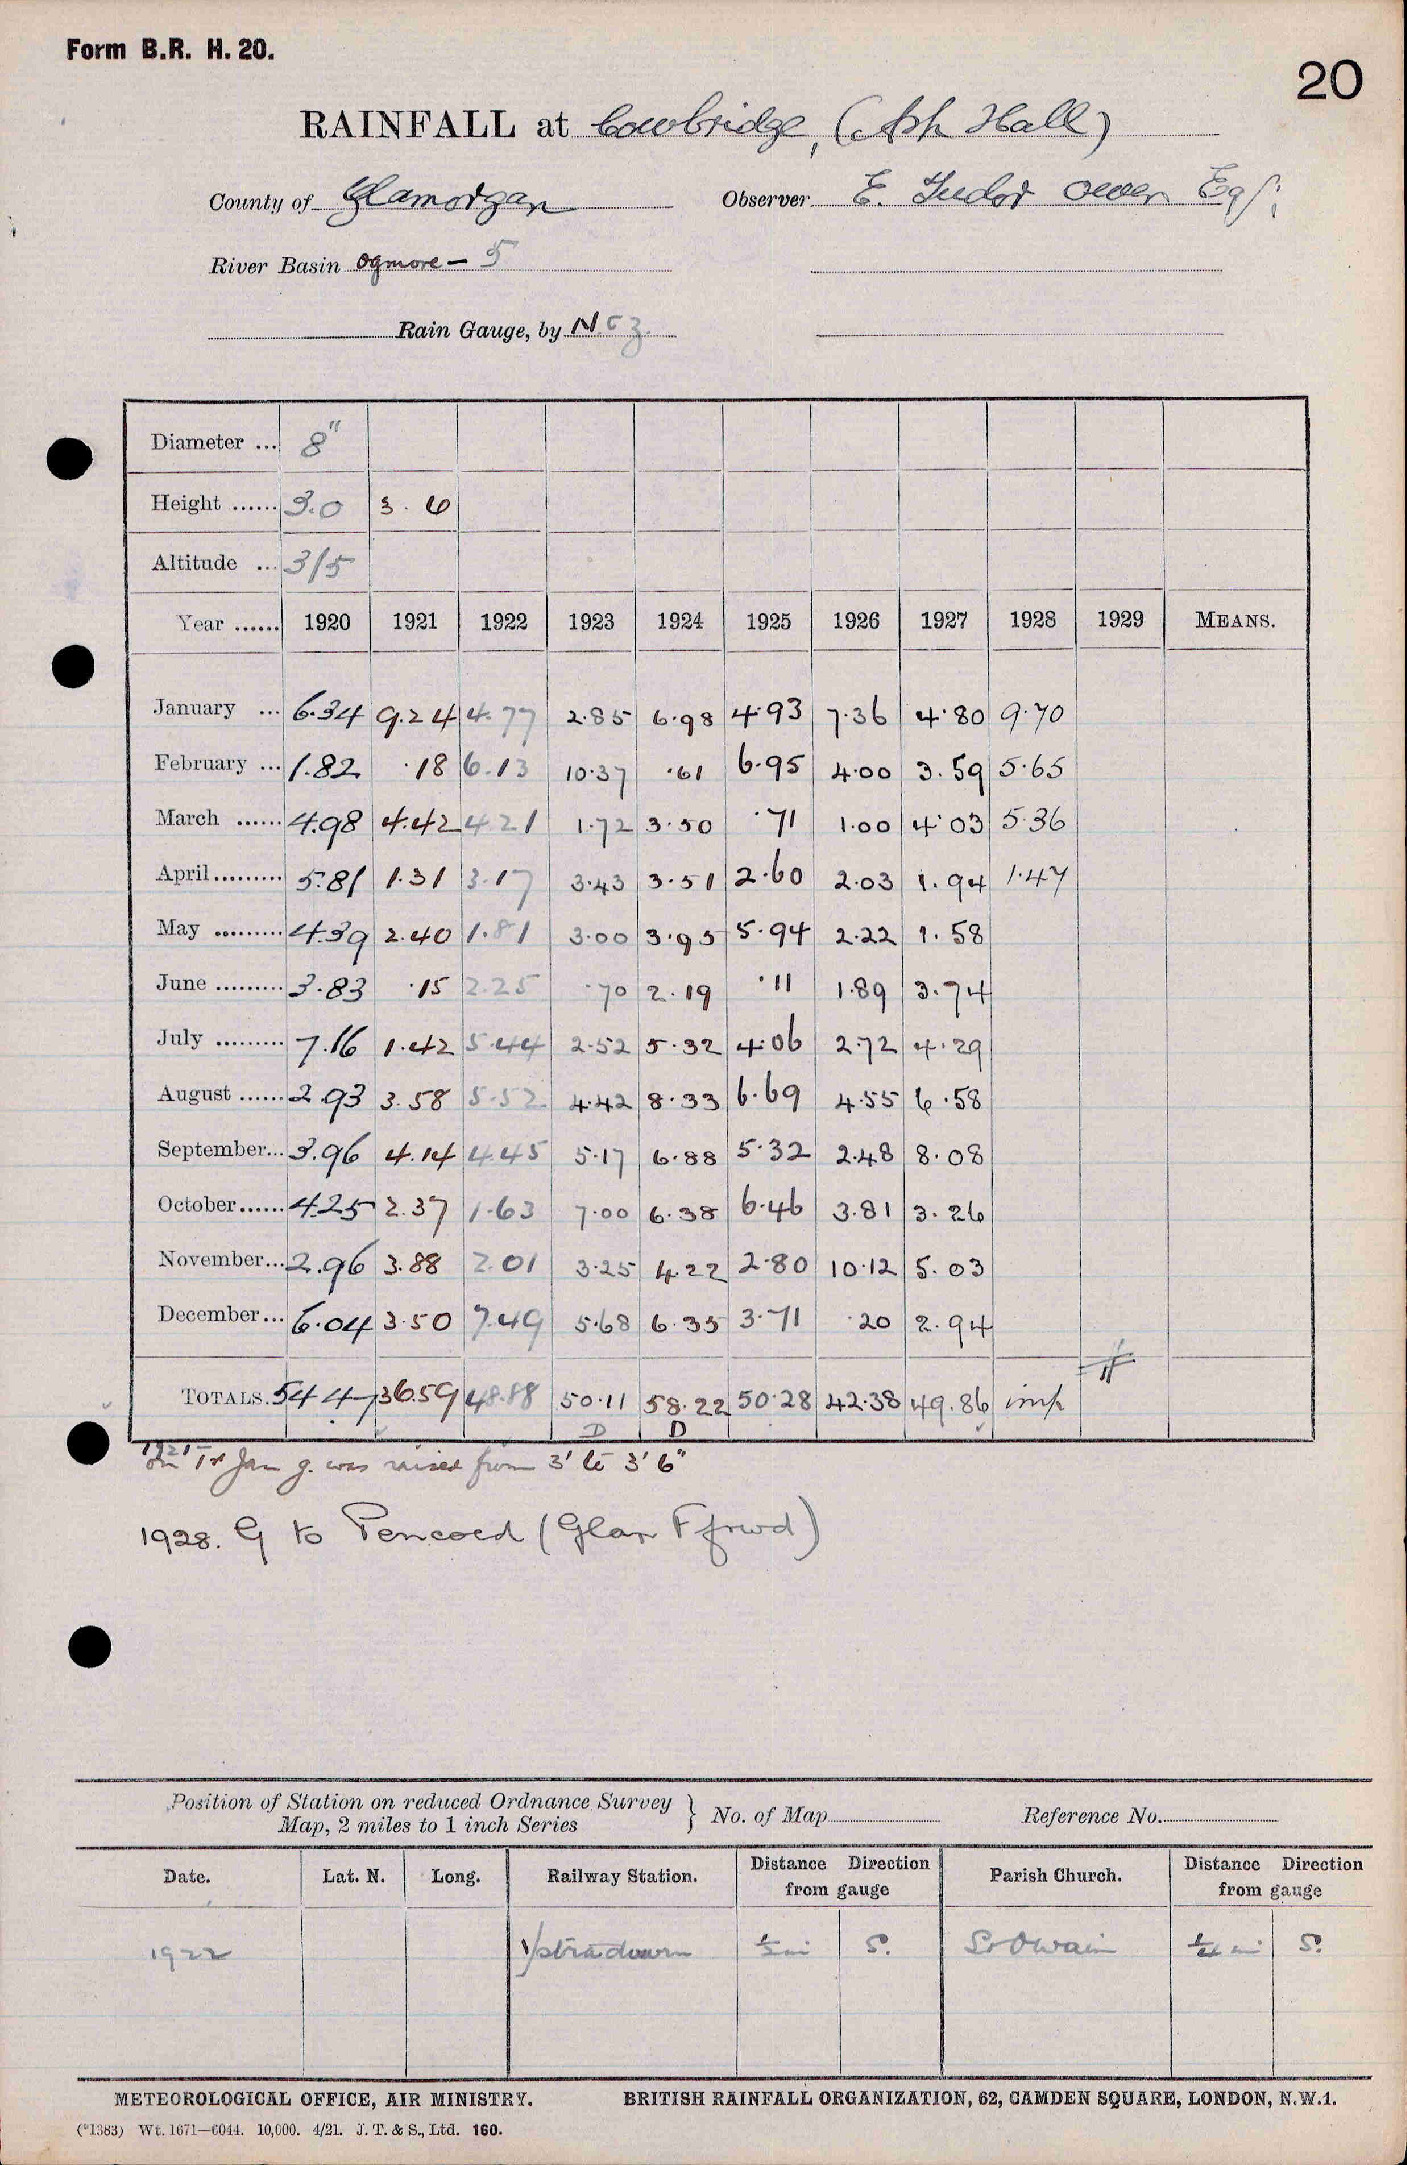 Form B.R. H. 20.
20
RAINFALL at Cowbridge, (Ash Hall)
County of Glamorgan Observer E. Tudor Owen Esq;
River Basin Ogmore — 5
Rain Gauge, by N & Z.
Diameter ... 8"
Height ...... 3.0 3. 6
Altitude ... 315
Year ...... 1920 1921 1922 1923 1924 1925 1926 1927 1928 1929 MEANS.
January ... 6.34 9.24 4.77 2.85 6.98 4.93 7.36 4.80 9.70
February ... 1.82 .18 6.13 10.37 .61 6.95 4.00 3.59 5.65
March ...... 4.98 4.42 4.21 1.72 3.50 .71 1.00 4.03 5.36
April......... 5.81 1.31 3.17 3.43 3.51 2.60 2.03 1.94 1.47
May ......... 4.39 2.40 1.81 3.00 3.95 5.94 2.22 1.58
June ......... 3.83 .15 2.25 .70 2.19 .11 1.89 3.74
July ......... 7.16 1.42 5.44 2.52 5.32 4.06 2.72 4.29
August ...... 2.93 3.58 5.52 4.42 8.33 6.69 4.55 6.58
September... 3.96 4.14 4.45 5.17 6.88 5.32 2.48 8.08
October...... 4.25 2.37 1.63 7.00 6.38 6.46 3.81 3.26
November... 2.96 3.88 2.01 3.25 4.22 2.80 10.12 5.03
December... 6.04 3.50 7.49 5.68 6.35 3.71 .20 2.94
TOTALS. 54.47 36.59 48.88 50.11 58.22 50.28 42.38 49.86 imp
D D
1921 On 1st Jan g. was raised from 3' to 3' 6"
1928. G to Pencoed (Glan Ffrwd)
Position of Station on reduced Ordnance Survey
Map, 2 miles to 1 inch Series } No. of Map Reference No.
Date. Lat. N. Long. Railway Station. Distance Direction from gauge Parish Church. Distance Direction from gauge
1922 Ystradowen ½ mi S. St Owain ¼ mi S.
METEOROLOGICAL OFFICE, AIR MINISTRY. BRITISH RAINFALL ORGANIZATION, 62, CAMDEN SQUARE, LONDON, N.W.1.
(*1383) Wt. 1671—6044. 10,000. 4/21. J. T. & S., Ltd. 160.